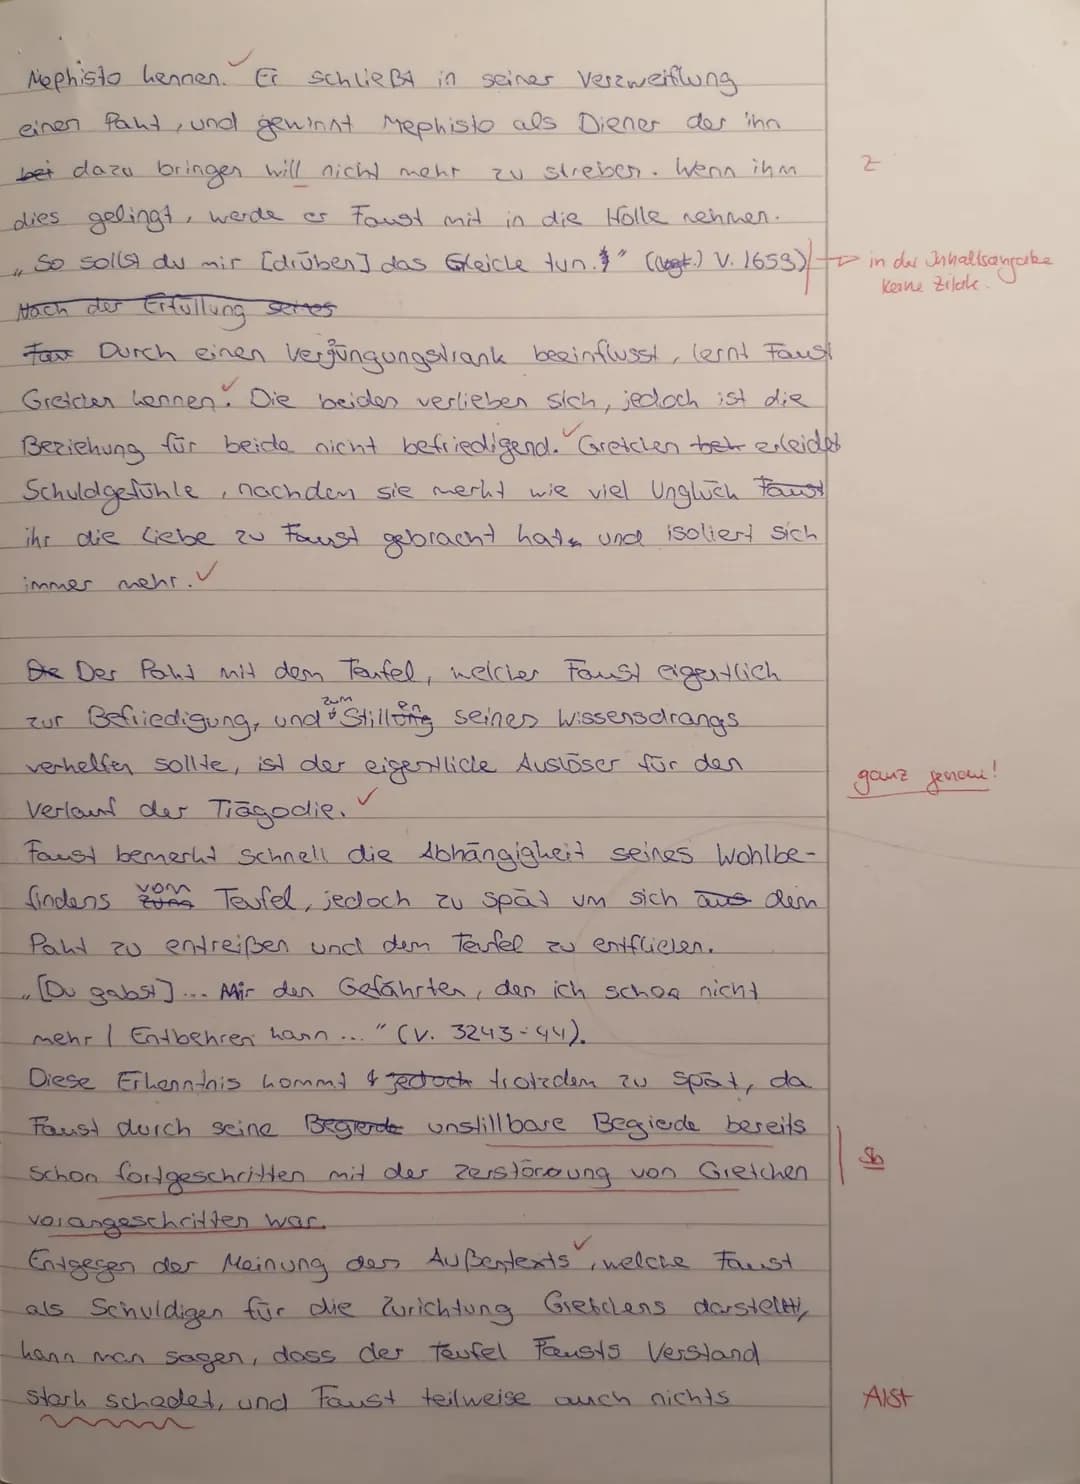 Mephisto kennen. Er schließt in seiner Verzweiflung
einen Pakt, und gewinnt Mephisto als Diener der ihn
bei dazu bringen will nicht mehr zu streben. Wenn ihm
Z
dies gelingt, werde er Faust mit in die Hölle nehmen.
"So sollst du mir [drüben] das Gleiche tun." (vgl.) V. 1659)
→ in der Inhaltsangabe
keine Zitate.
Nach der Erfüllung seines
Durch einen Verjüngungstrank beeinflusst, lernt Faust
Gretchen kennen. Die beiden verlieben sich, jedoch ist die
Beziehung für beide nicht befriedigend. Gretchen erleidet
Schuldgefühle, nachdem sie merkt wie viel Unglück Faust
ihr die Liebe zu Faust gebracht hat, und isoliert sich
immer mehr.
De Der Pakt mit dem Teufel, welcher Faust eigentlich
zur Befriedigung, und zum Stillen seines Wissensdrangs
verhelfen sollte, ist der eigentliche Auslöser für den
ganz genau!
Verlauf der Tragödie.
Faust bemerkt schnell die Abhängigkeit seines Wohlbe-
findens vom Teufel, jedoch zu spät um sich aus dem
Pakt zu entreißen und dem Teufel zu entfliehen.
"[Du gabst]... Mir den Gefährten, den ich schon nicht
mehr / Entbehren kann..." (V. 3243-44).
Diese Erkenntnis kommt jedoch trotzdem zu spät, da
Faust durch seine Begierde unstillbare Begierde bereits
schon fortgeschritten mit der Zerstöroung von Gretchen
Sb
vorangeschritten war.
Entgegen der Meinung des Außentexts, welche Faust
als Schuldigen für die Zurichtung Gretchens darstellt,
kann man sagen, dass der Teufel Fausts Verstand
stark schadet, und Faust teilweise auch nichts
A/St